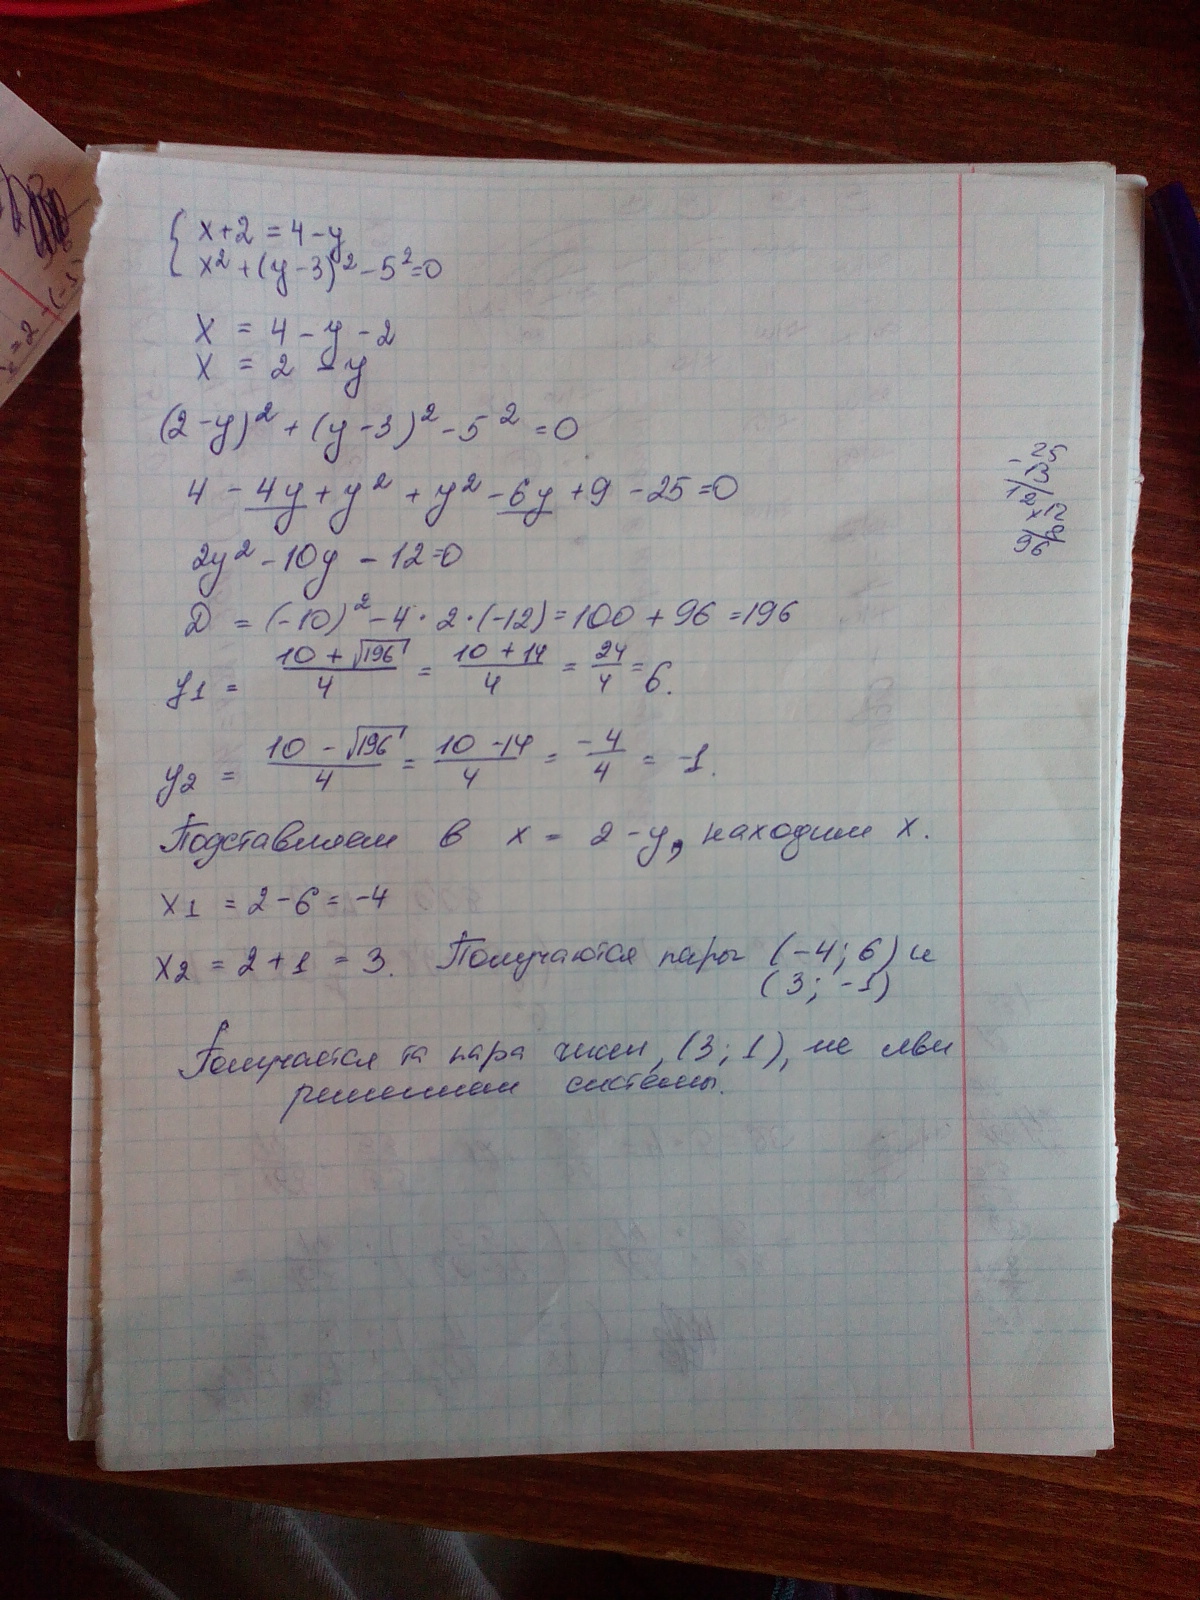 x+2 = 4-y
x² + (y-3)² - 5² = 0
x = 4 - y - 2
x = 2 - y
(2-y)² + (y-3)² - 5² = 0
4 - 4y + y² + y² - 6y + 9 - 25 = 0
2y² - 10y - 12 = 0
D = (-10)² - 4 · 2 · (-12) = 100 + 96 = 196
y1 = (10 + √196)/4 = (10 + 14)/4 = 24/4 = 6.
y2 = (10 - √196)/4 = (10 - 14)/4 = -4/4 = -1.
Подставляем в x = 2 - y, находим x.
x1 = 2 - 6 = -4
x2 = 2 + 1 = 3. Получаются пары (-4; 6) и
(3; -1)
Получается та пара чисел, (3; 1), не явл
решением системы.